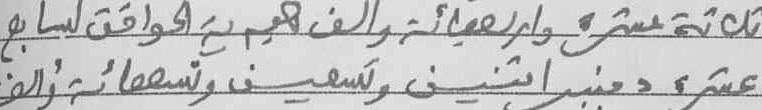 ثلاثة عشرة واربعمائة والف هجرية الموافق لسابع
عشرة دجنبر اثنين وتسعين وتسعمائة والف